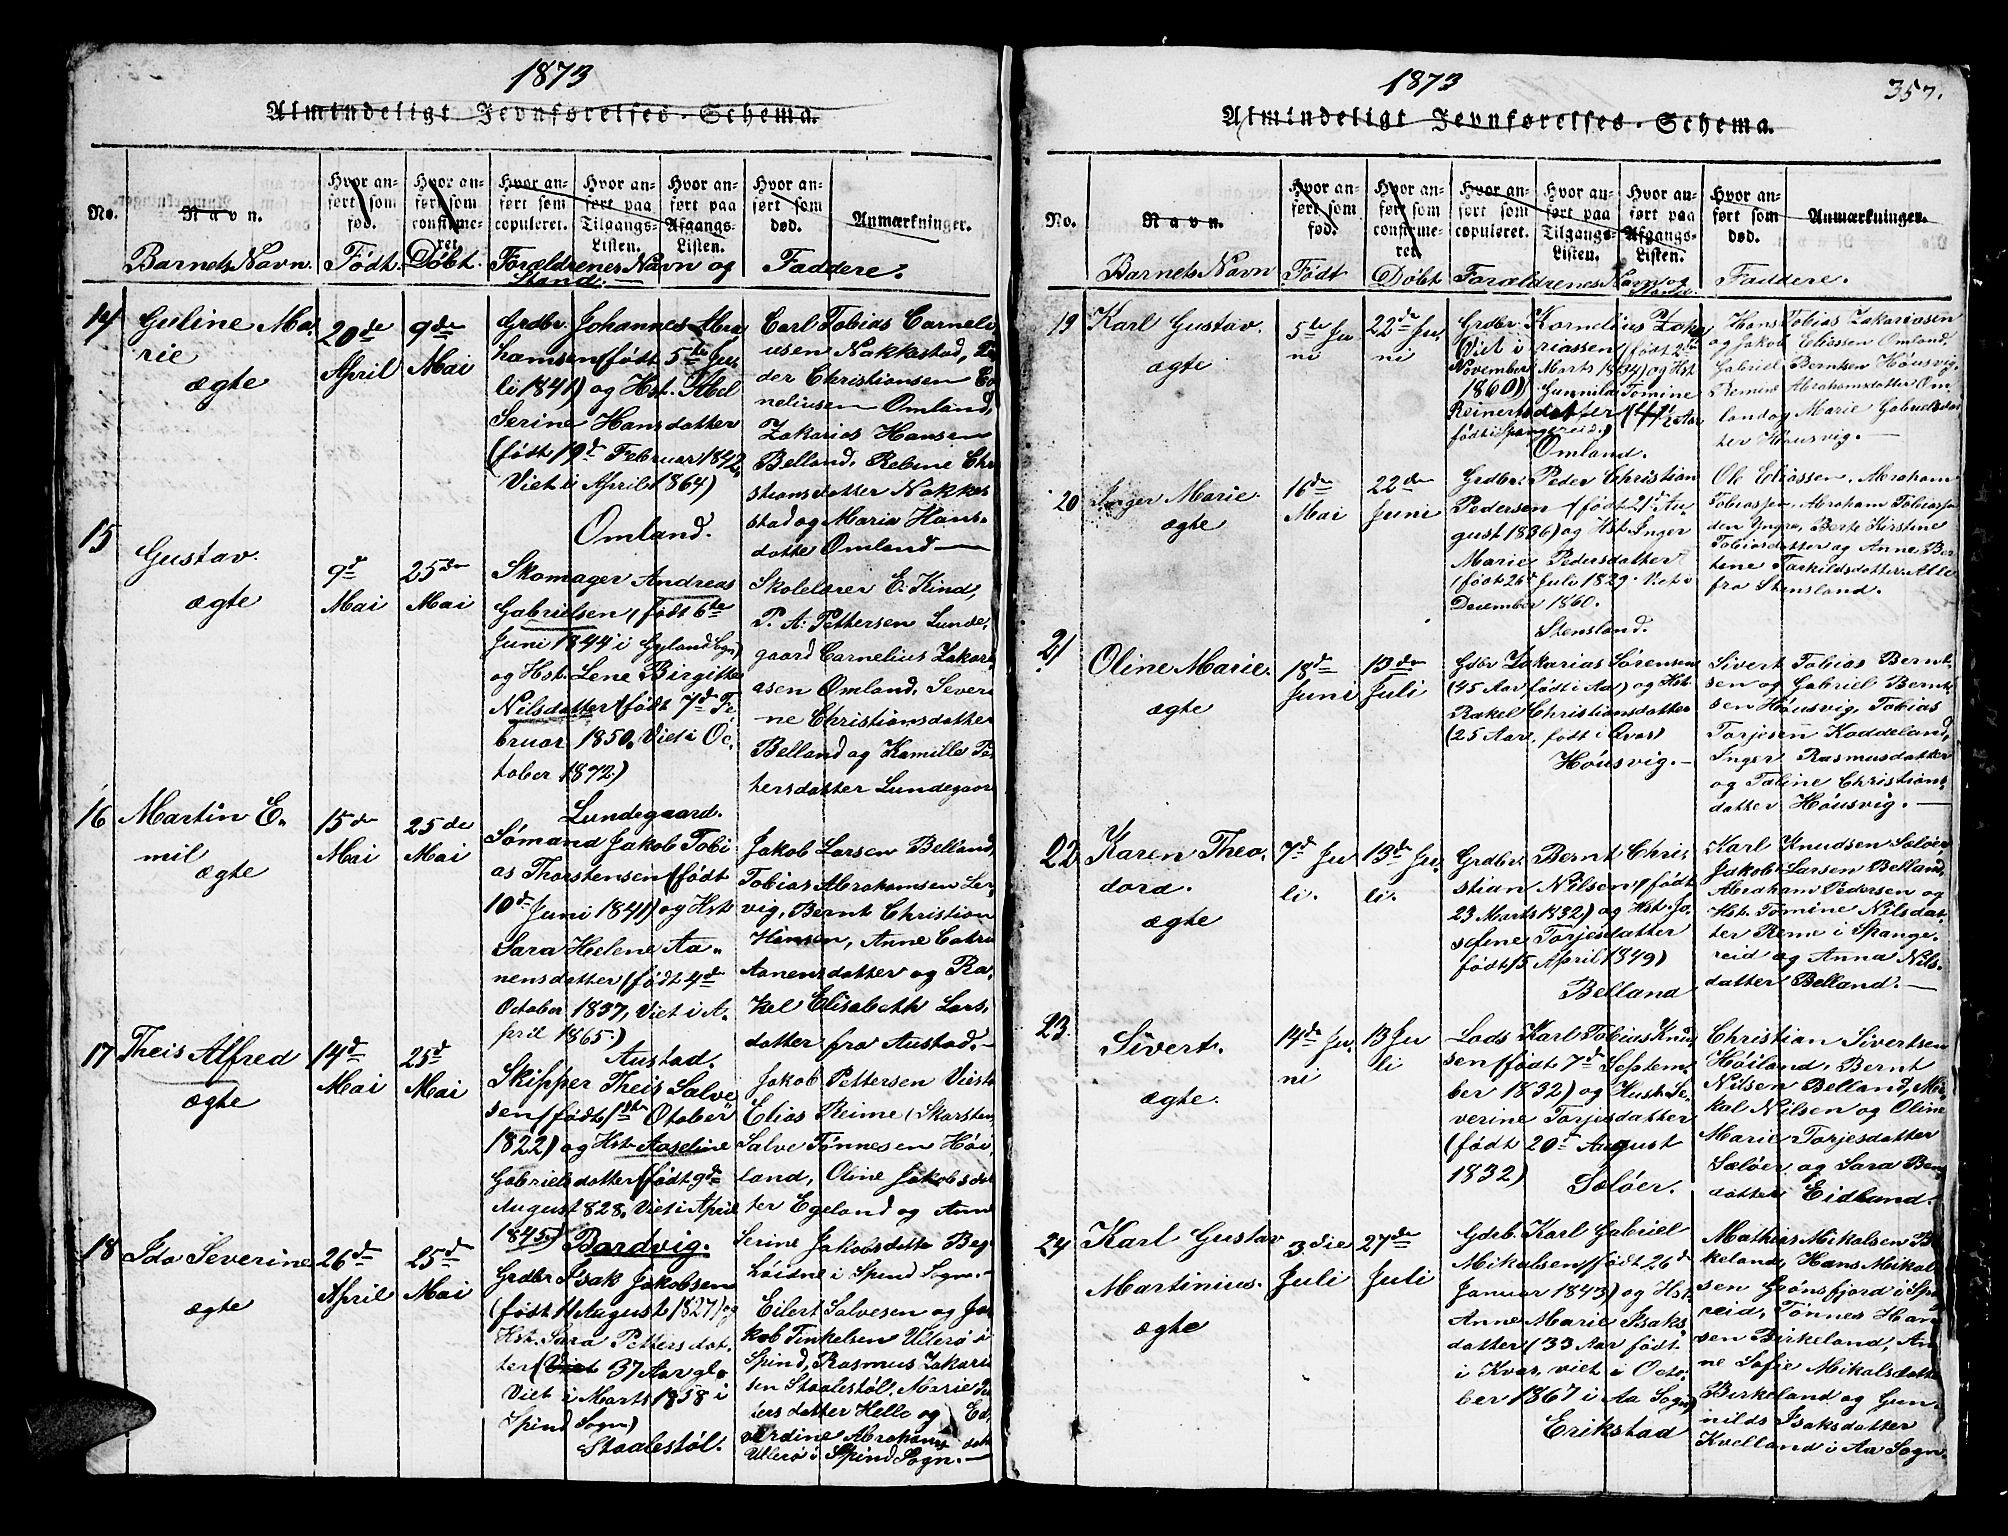 1873
Almindeligt Jevnførelses-Schema.
No.
Navn.
Hvor an-
ført som
fød.
Hvor an-
ført som
confirme-
ret.
Hvor an-
ført som
copuleret.
Hvor an-
ført paa
Tilgangs-
Listen.
Hvor an-
ført paa
Afgangs-
Listen.
Hvor an-
ført som
død.
Anmærkninger.
Barnets Navn.
Født.
Døbt.
Forældrenes Navn og
Stand.
Faddere.
14
Guline Ma-
rie
ægte
20de
April
9de
Mai
Grdbr. Johannes Abra
hamsen (født 5te Ju-
li 1841) og Hst. Abel
Serine Hansdatter
(født 19d Februar 1842
Viet i April 1864)
Omland.
Carl Tobias Corneli
usen Nakkestad, Pe
der Christiansen Co
neliusen Omland,
Zakarias Hansen
Belland, Rebine Chri
stiansdatter Nakke-
stad og Maria Hans-
datter Omland
15
Gustav.
ægte
9d
Mai
25de
Mai
Skomager Andreas
Gabrielsen (født 6te
Juni 1844 i Gyland Sogn)
og Hst. Lene Birgitte
Nilsdatter (født 7d Fe
bruar 1850. Viet i Oc-
tober 1872.)
Lundegaard.
Skolelærer E. Kind,
P. A. Pettersen Lunde-
gaard Carnelius Zakari
asen Omland, Severi
ne Christiansdatter
Belland og Kamille Pe-
tersdatter Lundegaar
16
Martin E-
mil
ægte
15de
Mai
25de
Mai
Sømand Jakob Tobi
as Thorstensen (født
10d Juni 1841) og Hst
Sara Helene Aa-
nensdatter (født 4d
October 1837, Viet i A-
pril 1865.)
Austad.
Jakob Larsen Belland,
Tobias Abrahamsen Ler-
vig, Bernt Christian
Hansen, Anne Catri
Aanensdatter og Ra-
kel Elisabeth Lars-
datter fra Austad.
17
Theis Alfred
ægte
14de
Mai
25d
Mai
Skipper Theis Salve-
sen (født 1ste October
1822) og Hst. Aaseline
Gabrielsdatter (født 9de
August 828. Viet i April
1845) Bardvig.
Jakob Pettersen Viest
Elias Reime (Skarsten,
Salve Tønnesen Høi-
land, Oline Jakobsdat
ter Egeland og Ann
Serine Jakobsdatte Beg
høidne i Spind Sogn.
18
Ida Severine
ægte
26de
April
25de
Mai
Grdbr Isak Jakobsen
(født 11 August 1827) og
Hst. Sara Pettersdat-
ter (Viet 37 Aar gl.
Viet i Marts 1858 i
Spind Sogn)
Staalestøl.
Eilert Salvesen og Ja-
kob Tinkelsen Ullerø i
Spind, Rasmus Zakaria
sen Staalestøl, Marie Pet
tersdatter Helle og Ed-
vardine Abrahams dat
Ullerø i Spind Sogn.
1873
357.
Almindeligt Jevnførelses-Schema.
No.
Navn.
Hvor an-
ført som
fød.
Hvor an-
ført som
confirme-
ret.
Hvor an-
ført som
copuleret.
Hvor an-
ført paa
Tilgangs-
Listen.
Hvor an-
ført paa
Afgangs-
Listen.
Hvor an-
ført som
død.
Anmærkninger.
Barnets Navn
Født
Døbt
Forældrenes Navn og
Stand.
Faddere.
19
Karl Gustav.
ægte
5te Ju
ni
22de Ju-
ni
Grdbr. Kornelius Zaka
(Viet i riassen (født 2de
November Marts 1834) og Hst
1860) Gunnila Tomine
Reinertsdatter (41 Aar
født i Spangereid.)
Omland.
Hans Tobias Zakariasen
og Jakob Eliassen Omland,
Gabriel Berntsen Höusvig,
Bemine Abrahamsdatter Om
land og Marie Gabrielsdat
ter Höusvig.
20
Inger Marie.
ægte
16de
Mai
22de
Juni
Grdbr: Peder Christian
Pedersen (født 21d Au-
gust 1836) og Hst: Inger
Marie Pedersdatter
(født 26d Juli 1829. Viet i
December 1860.
Stensland.
Ole Eliassen, Abraham
Tobiassen, Abraham Tobiassen
den Yngre, Berte Kirstine
Tobiasdatter og Anne Ber
tine Tarkildsdatter Alle
fra Stensland.
21
Oline Marie.
ægte
18d
Juni
13de
Juli
Grdbr Zakarias Sørensen
(45 Aar født i Aa) og Hst
Rakel Christiansdatter
(25 Aar, født i Qvas)
Höusvig.
Sivert Tobias Bernt-
sen og Gabriel Bernt-
sen Höusvig, Tobias
Torjesen Kaddeland,
Inger Rasmusdatter
og Tabine Christians
datter Höusvig.
22
Karen Theo-
dora.
ægte
7d Ju
li.
13de Ju-
li.
Grdbr. Bernt Chri-
stian Nilsen, (født
23 Marts 1832) og Hst. Jo-
sefine Torjesdatter
født 15 April 1849)
Belland
Karl Knudsen Saløer
Jakob Larsen Belland,
Abraham Pedersen og
Hst. Tomine Nilsdat-
ter Reme i Spange-
reid og Anna Nils-
datter Belland.
23.
Sivert.
ægte.
14de Ju-
ni
13 Ju
li
Lods Karl Tobias Knud
sen (født 7d Septem-
ber 1832) og Hust. Se-
verine Torjesdatter
(født 20d August
1832)
Saløer.
Christian Sivertsen
Høiland, Bernt
Nilsen Belland, Mi-
kal Nilsen og Oline
Marie Torjesdatter
Saløer, og Sara Ben
datter Eidland.
24
Karl Gustav
Martinius.
ægte
3die
Juli
27de
Juli
Gdrb. Karl Gabriel
Mikalsen (født 26de
Januar 1843) og Hst.
Anne Marie Isaks-
datter (33 Aar født
i Kvas, viet i Octo-
ber 1867 i Aa Sogn)
Erikstad
Mathias Mikalsen Bi
keland, Hans Mikal
sen Grønsfjord i Spa
reid, Tønnes Han-
sen Birkeland, An
ne Sofie Mikalsdatte
Birkeland og Gun-
nild Isaksdatter
Kvelland i Aa Sogn.